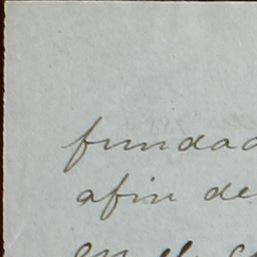 fundad
afin de